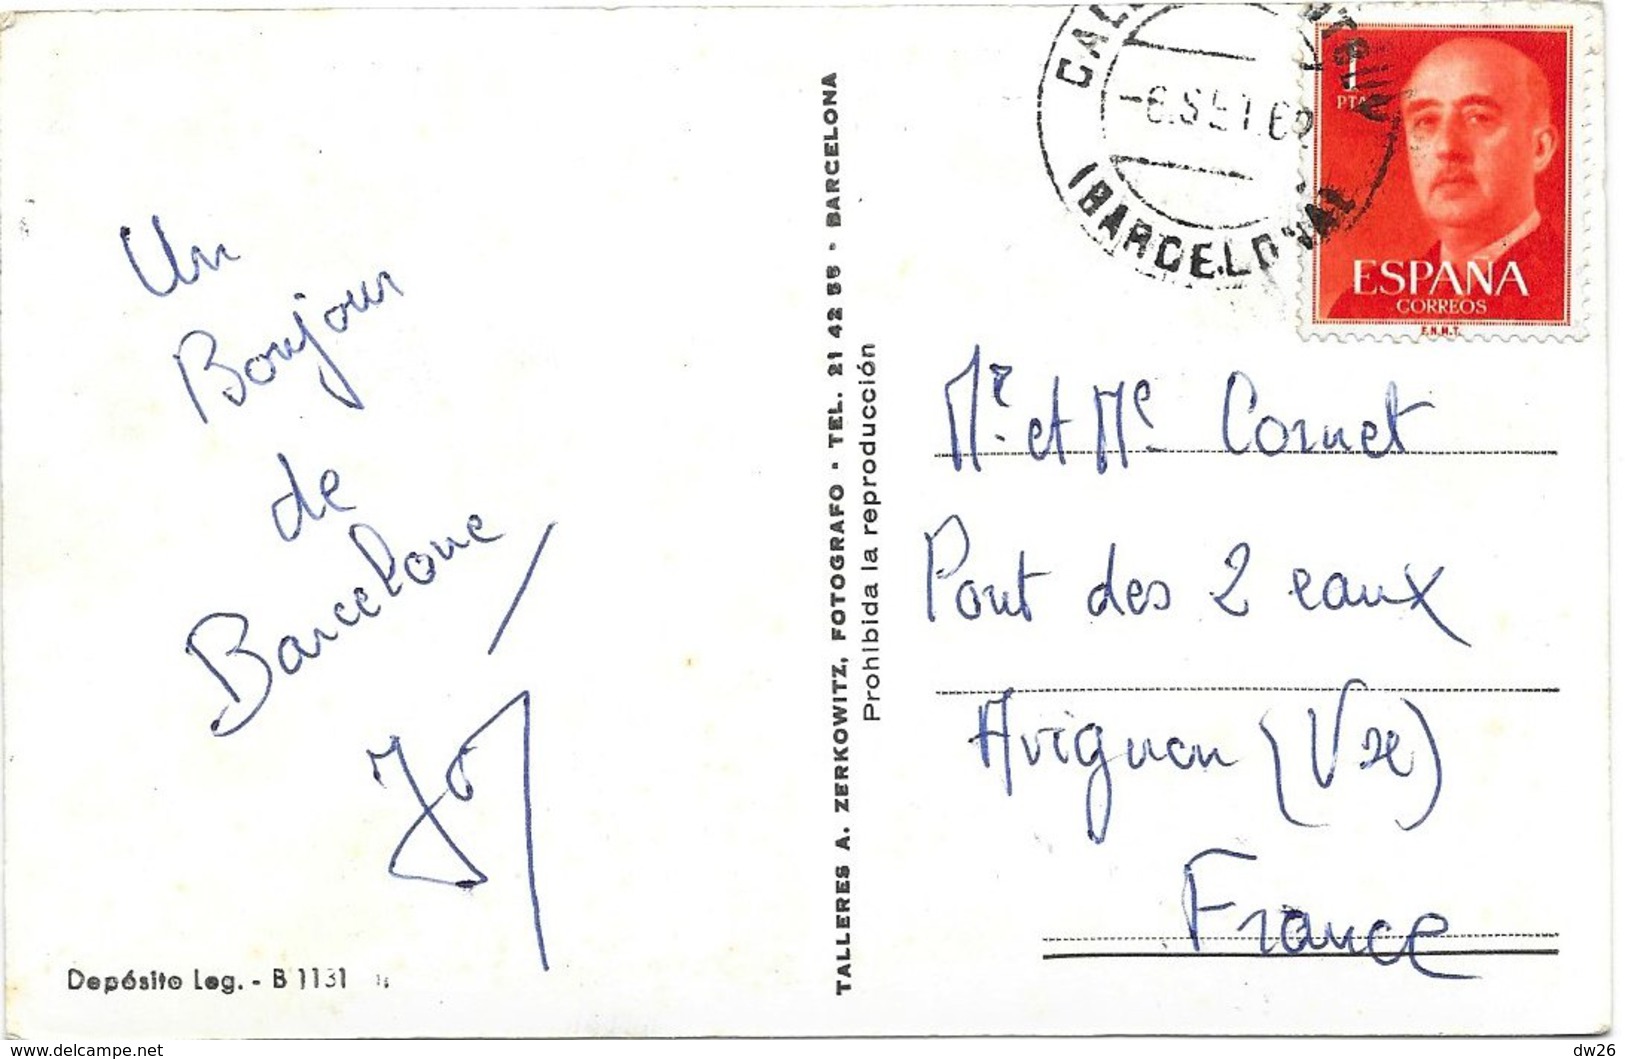 Un
Bonjour
de
Barcelone
Depósito Leg. - B 1131
TALLERES A. ZERKOWITZ, FOTOGRAFO - TEL. 21 42 55 - BARCELONA
Prohibida la reproducción
-6.SET.62
(BARCELONA)
1
PTA
ESPAÑA
CORREOS
F.N.M.T.
Mr. et Me Cornet
Pont des 2 eaux
Avignon (Vse)
France
www.delcampe.net
dw26